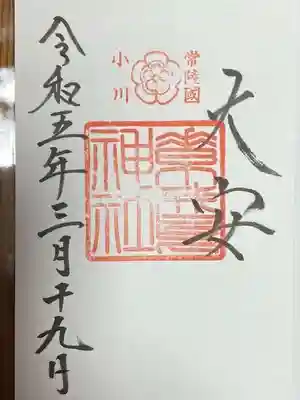 常陸國
小川
大安
素鵞神社
令和五年三月十九日